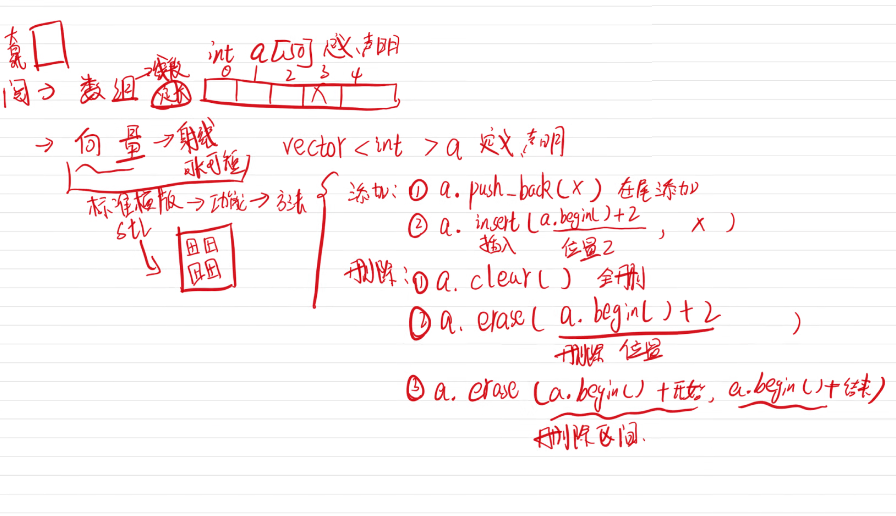 int a[150] 定义,声明
0 1 2 3 4
问→ 数组 → 定长
X
→ 向量 → 射线 可长可短
vector<int>a 定义,声明
标准模版→功能→方法
stl
添加: ① a.push_back(X) 在尾添加
② a.insert(a.begin()+2, x)
插入 位置2
删除: ① a.clear() 全删
② a.erase( a.begin()+2 )
删除 位置
③ a.erase (a.begin()+开始, a.begin()+结束)
删除区间.